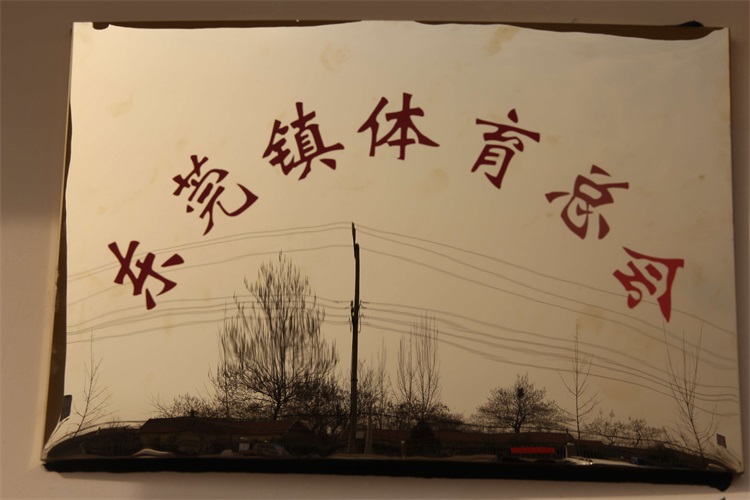 东莞镇体育总会